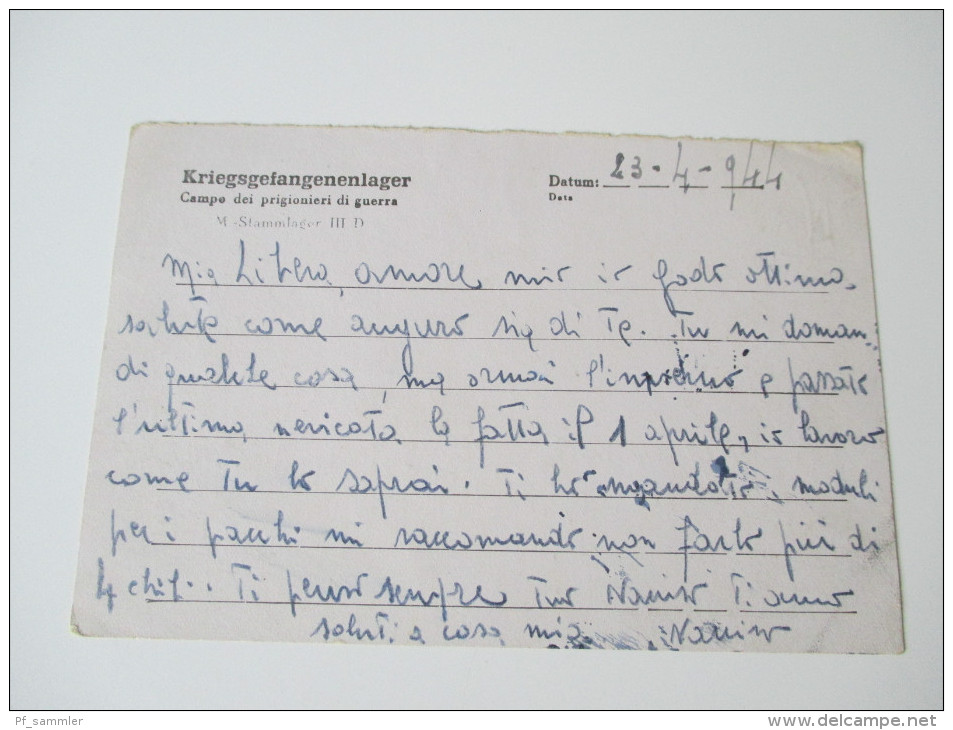 Kriegsgefangenenlager
Campo dei prigionieri di guerra
M.-Stammlager III D
Datum: 23-4-944
Data
Mia Libera, amore mio io godo ottima
salute come auguro sia di Te. Tu mi doman-
di qualche cosa, ma ormai l'inverno e passato
l'ultima nevicata la fatta il 1 aprile, io lavoro
come Tu lo saprai. Ti ho mandato i moduli
per i pacchi mi raccomando non farlo più di
4 chil.. Ti penso sempre Tuo Ti amo
saluti a casa mia
Pf_sammler
www.delcampe.net